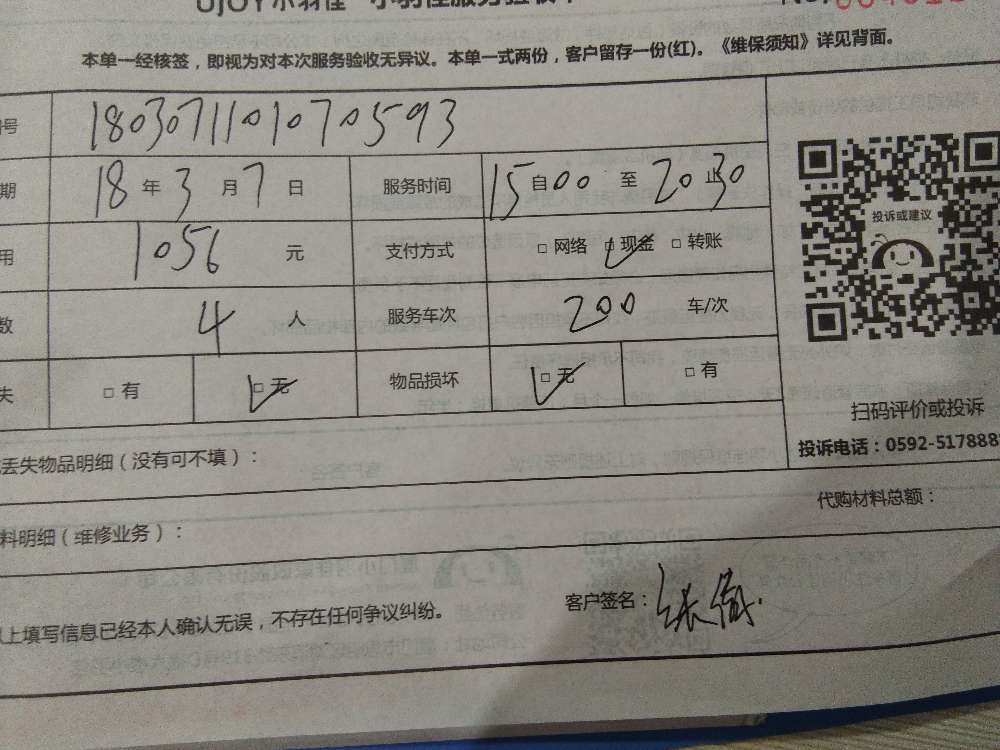 本单一经核签，即视为对本次服务验收无异议。本单一式两份，客户留存一份(红)。《维保须知》详见背面。
号 180307110107 0593
期 18 年 3 月 7 日 服务时间 15 自 00 至 20 止 30
用 1056 元 支付方式 □ 网络 □ 现金 □ 转账
数 4 人 服务车次 200 车/次
失 □ 有 □ 无 物品损坏 □ 无 □ 有
投诉或建议
扫码评价或投诉
投诉电话：0592-5178887
丢失物品明细（没有可不填）：
代购材料总额：
料明细（维修业务）：
上填写信息已经本人确认无误，不存在任何争议纠纷。
客户签名：